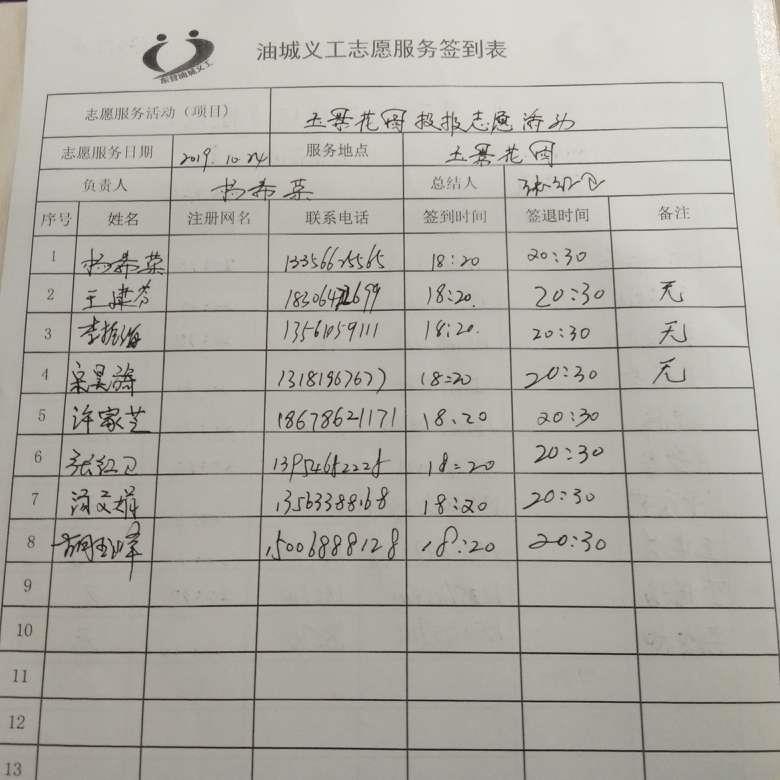 东营油城义工
油城义工志愿服务签到表
志愿服务活动（项目） 玉景花园投报志愿活动
志愿服务日期 2019.10.24 服务地点 玉景花园
负责人 杨希荣 总结人 张红卫
序号 姓名 注册网名 联系电话 签到时间 签退时间 备注
1 杨希荣 13356625565 18:20 20:30
2 王建芳 18:20. 20:30 无
3 李振海 13561059111 18:20. 20:30 无
4 宋昊 13181967677 18:20 20:30 无
5 许家芝 18678621171 18.20 20:30
6 张红卫 13954682228 18:20 20:30
7 13563388168 18:20 20:30
8 胡玉峰 15006888128 18:20 20:30
9
10
11
12
13